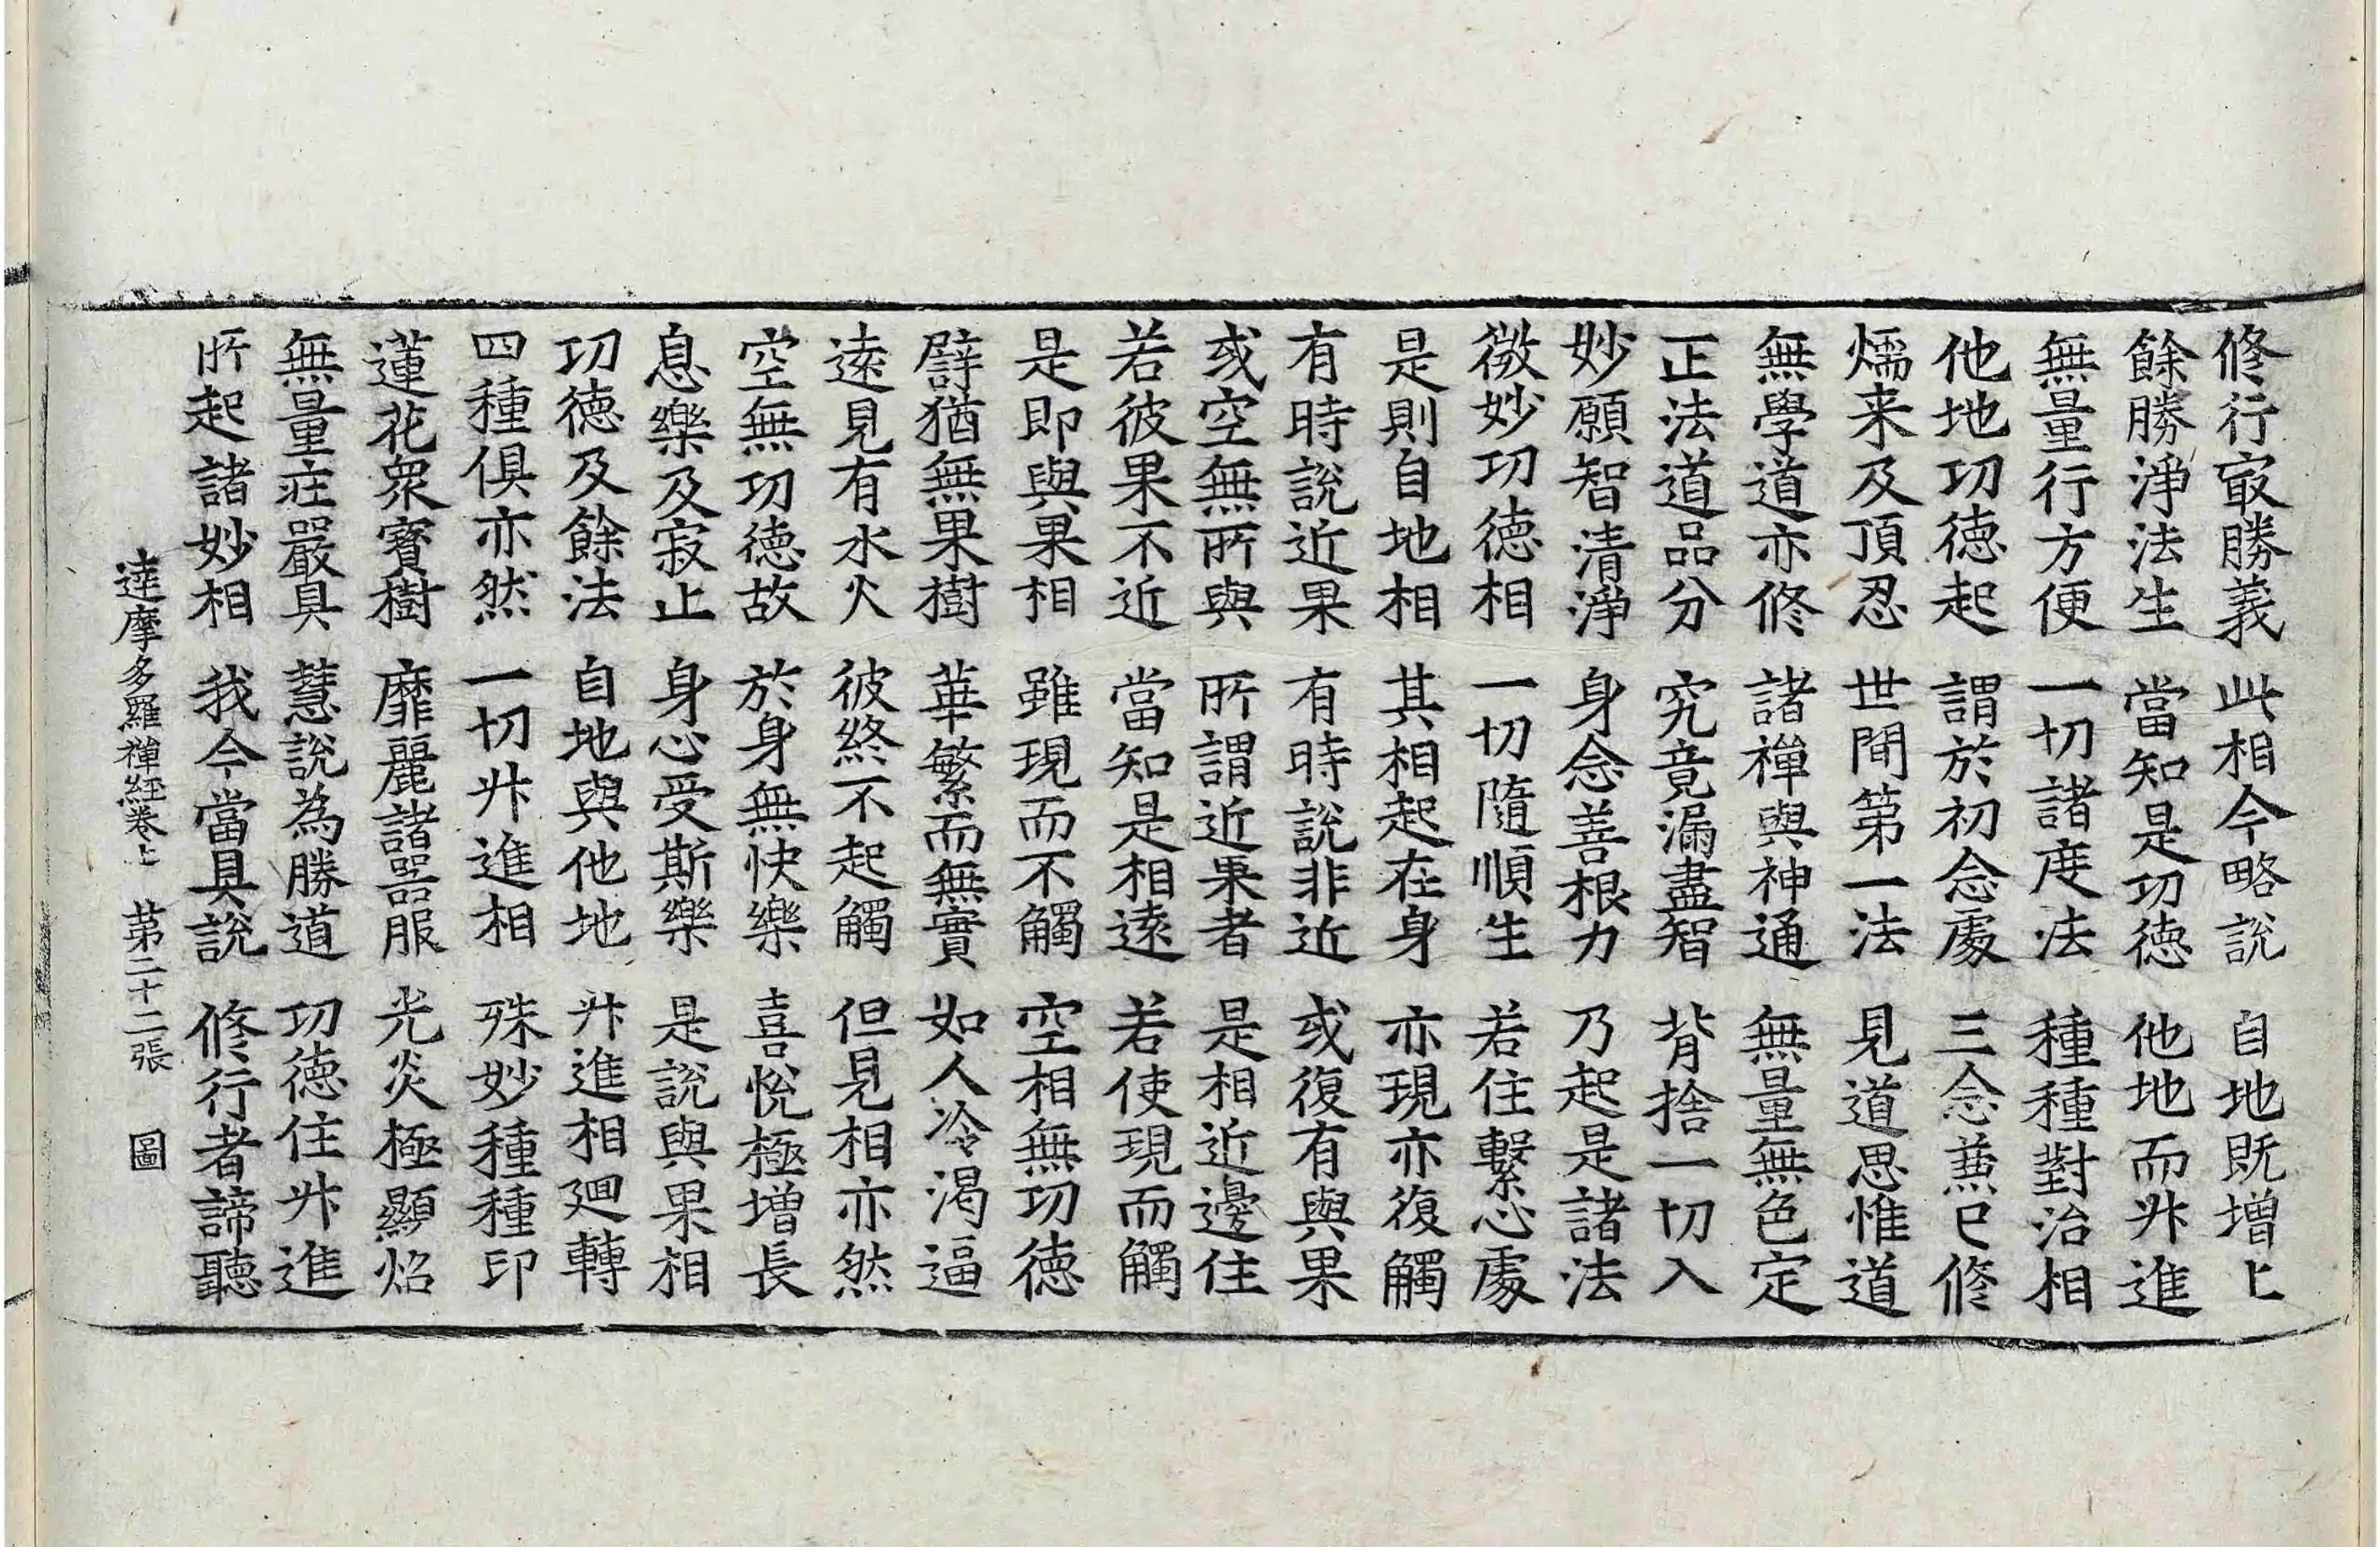 修行㝡勝義　此相今略說　自地既增上
餘勝淨法生　當知是功德　他地而升進
無量行方便　一切諸度法　種種對治相
他地功德起　謂於初念處　三念兼已修
燸来及頂忍　世間第一法　見道思惟道
無學道亦修　諸禪與神通　無量無色定
正法道品分　究竟漏盡智　背捨一切入
妙願智清淨　身念善根力　乃起是諸法
微妙功德相　一切隨順生　若住繫心處
是則自地相　其相起在身　亦現亦復觸
有時說近果　有時說非近　或復有與果
或空無所與　所謂近果者　是相近邊住
若彼果不近　當知是相遠　若使現而觸
是即與果相　雖現而不觸　空相無功德
譬猶無果樹　華繁而無實　如人冷渴逼
遠見有水火　彼終不起觸　但見相亦然
空無功德故　於身無快樂　喜悅極增長
息樂及寂止　身心受斯樂　是說與果相
功德及餘法　自地與他地　升進相迴轉
四種俱亦然　一切升進相　殊妙種種印
蓮花衆寶樹　靡麗諸器服　光炎極顯焰
無量莊嚴具　慧說為勝道　功德住升進
所起諸妙相　我今當具說　修行者諦聽
達摩多羅禪経卷上　第二十二張　圖